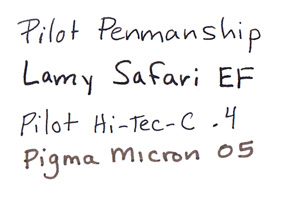 Pilot Penmanship
Lamy Safari EF
Pilot Hi-Tec-C .4
Pigma Micron 05